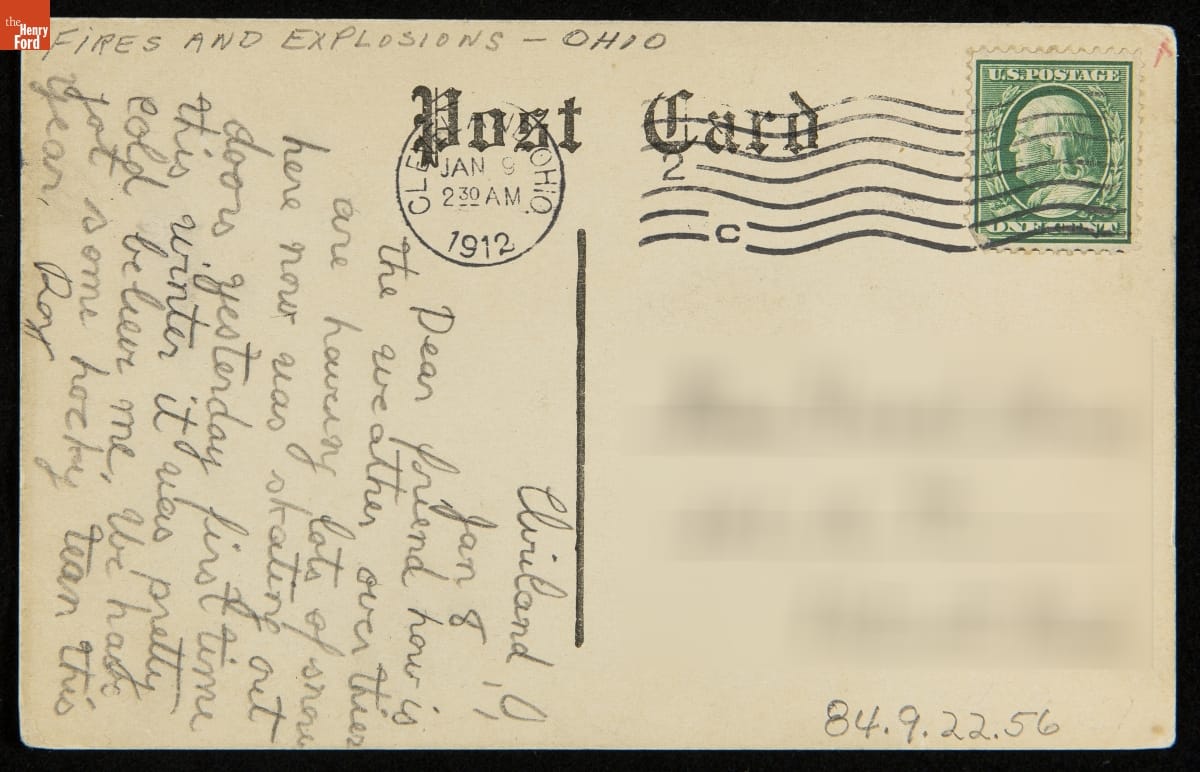 the
Henry
Ford
FIRES AND EXPLOSIONS - OHIO
Post Card
U.S. POSTAGE
ONE CENT
OHIO
JAN 9
2 30 AM
1912
2
C
Clriland O
Jan 8
Dear friend how is
the weather over thier
are having lots of snow
here now was skating out
doors yesterday first time
this winter it was pretty
cold beleiv me, We have
got some hocky team this
year,
Roy
84.9.22.56